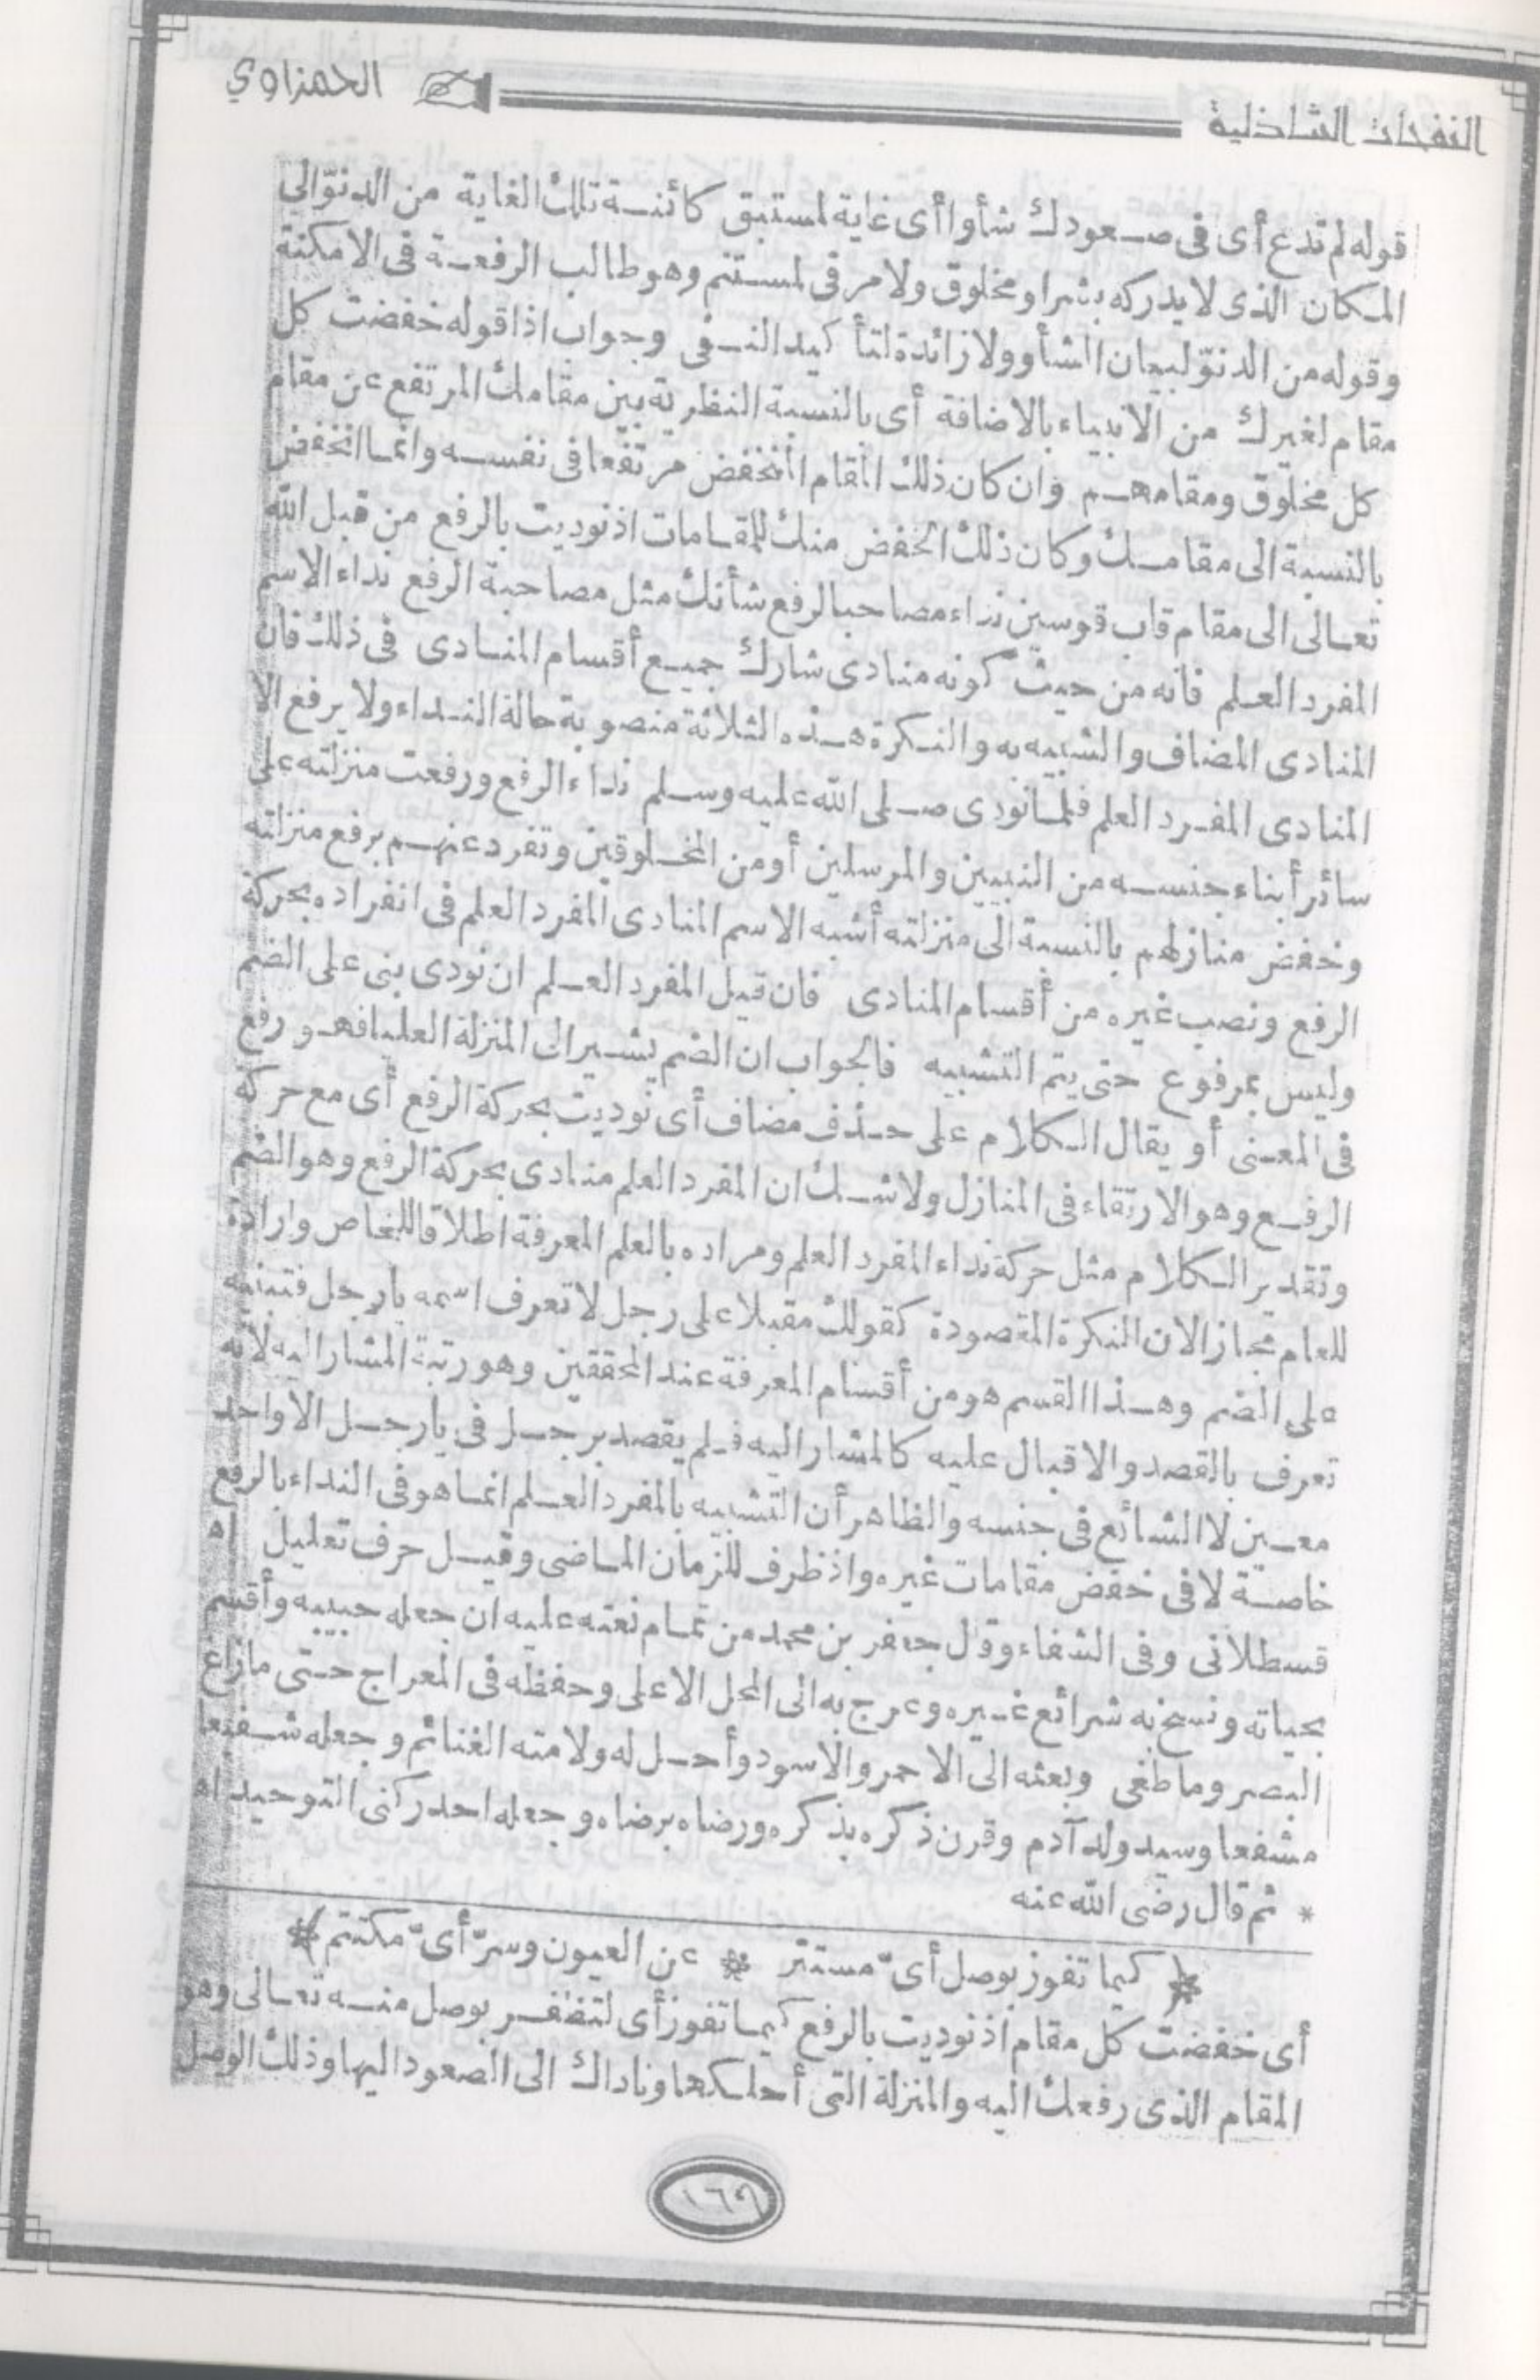 النفحات الشاذلية
الحمزاوي
قوله لم تدع أى فى صعودك شأوا أى غاية لمستبق كائنة تلك الغاية من الدنوّ الى
المكان الذى لا يدركه بشر او مخلوق ولا مرقى لمستنم وهو طالب الرفعة فى الامكنة
وقوله من الدنوّ لبيان الشأو ولا زائدة لتأكيد النفى وجواب اذا قوله خفضت كل
مقام لغيرك من الانبياء بالاضافة أى بالنسبة النظرية بين مقامك المرتفع عن مقام
كل مخلوق ومقامهم وان كان ذلك المقام المنخفض مرتفعا فى نفسه وانما انخفض
بالنسبة الى مقامك وكان ذلك الخفض منك للمقامات اذ نوديت بالرفع من قبل الله
تعالى الى مقام قاب قوسين نداء مصاحبا لرفع شأنك مثل مصاحبة الرفع نداء الاسم
المفرد العلم فانه من حيث كونه منادى شارك جميع أقسام المنادى فى ذلك فان
المنادى المضاف والشبيه به والنكرة هذه الثلاثة منصوبة حالة النداء ولا يرفع الا
المنادى المفرد العلم فلما نودى صلى الله عليه وسلم نداء الرفع ورفعت منزلته على
سائر أبناء جنسه من النبيين والمرسلين أو من المخلوقين وتفرد عنهم برفع منزلته
وخفض منازلهم بالنسبة الى منزلته أشبه الاسم المنادى المفرد العلم فى انفراده بحركة
الرفع ونصب غيره من أقسام المنادى فان قيل المفرد العلم ان نودى بنى على الضم
وليس بمرفوع حتى يتم التشبيه فالجواب ان الضم يشير الى المنزلة العليا فهو رفع
فى المعنى أو يقال الكلام على حذف مضاف أى نوديت بحركة الرفع أى مع حركة
الرفع وهو الارتقاء فى المنازل ولا شك ان المفرد العلم منادى بحركة الرفع وهو الضم
وتقدير الكلام مثل حركة نداء المفرد العلم ومراده بالعلم المعرفة اطلاقا للخاص وارادة
للعام مجازا لان النكرة المقصودة كقولك مقبلا على رجل لا تعرف اسمه يا رجل فتبنيه
على الضم وهذا القسم هو من أقسام المعرفة عند المحققين وهو رتبة المشار اليه لانه
تعرف بالقصد والاقبال عليه كالمشار اليه فلم يقصد برجل فى يا رجل الا واحد
معين لا الشائع فى جنسه والظاهر أن التشبيه بالمفرد العلم انما هو فى النداء بالرفع
خاصة لا فى خفض مقامات غيره واذ ظرف للزمان الماضى وقيل حرف تعليل اه
قسطلانى وفى الشفاء وقال جعفر بن محمد من تمام نعته عليه ان جعله حبيبه وأقسم
بحياته ونسخ به شرائع غيره وعرج به الى المحل الاعلى وحفظه فى المعراج حتى ما زاغ
البصر وما طغى وبعثه الى الاحمر والاسود وأحل له ولامته الغنائم وجعله شفيعا
مشفعا وسيد ولد آدم وقرن ذكره بذكره ورضاه برضاه وجعله احد ركنى التوحيد اه
* ثم قال رضى الله عنه
* كيما تفوز بوصل أىّ مستتر * عن العيون وسرّ أىّ مكتتم *
أى خفضت كل مقام اذ نوديت بالرفع كيما تفوز أى لتظفر بوصل منه تعالى وهو
المقام الذى رفعك اليه والمنزلة التى أحلكها وناداك الى الصعود اليها وذلك الوصل
١٦٩